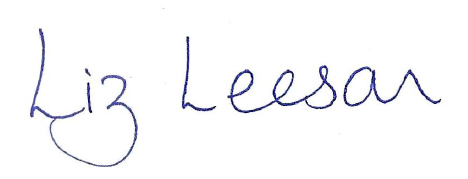 Liz Leeson